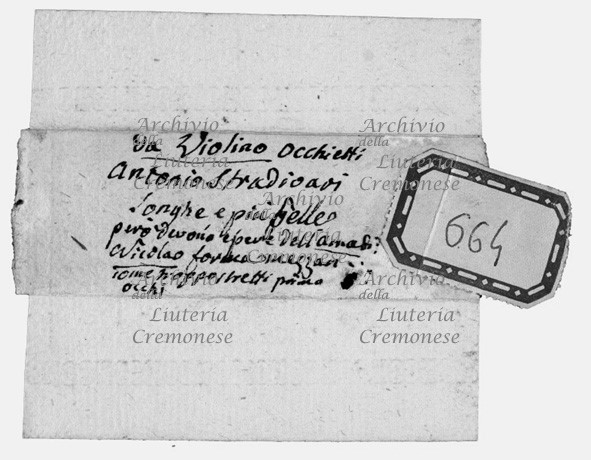 Da Violino occhietti
Antonio Stradivari
Longhe e piu Belle
però devono essere dell'Amati
Nicolao forma
stretti prima
occhi
664
Archivio
della
Liuteria
Cremonese
Archivio
della
Liuteria
Cremonese
Archivio
della
Liuteria
Cremonese
Archivio
della
Liuteria
Cremonese
Archivio
della
Liuteria
Cremonese